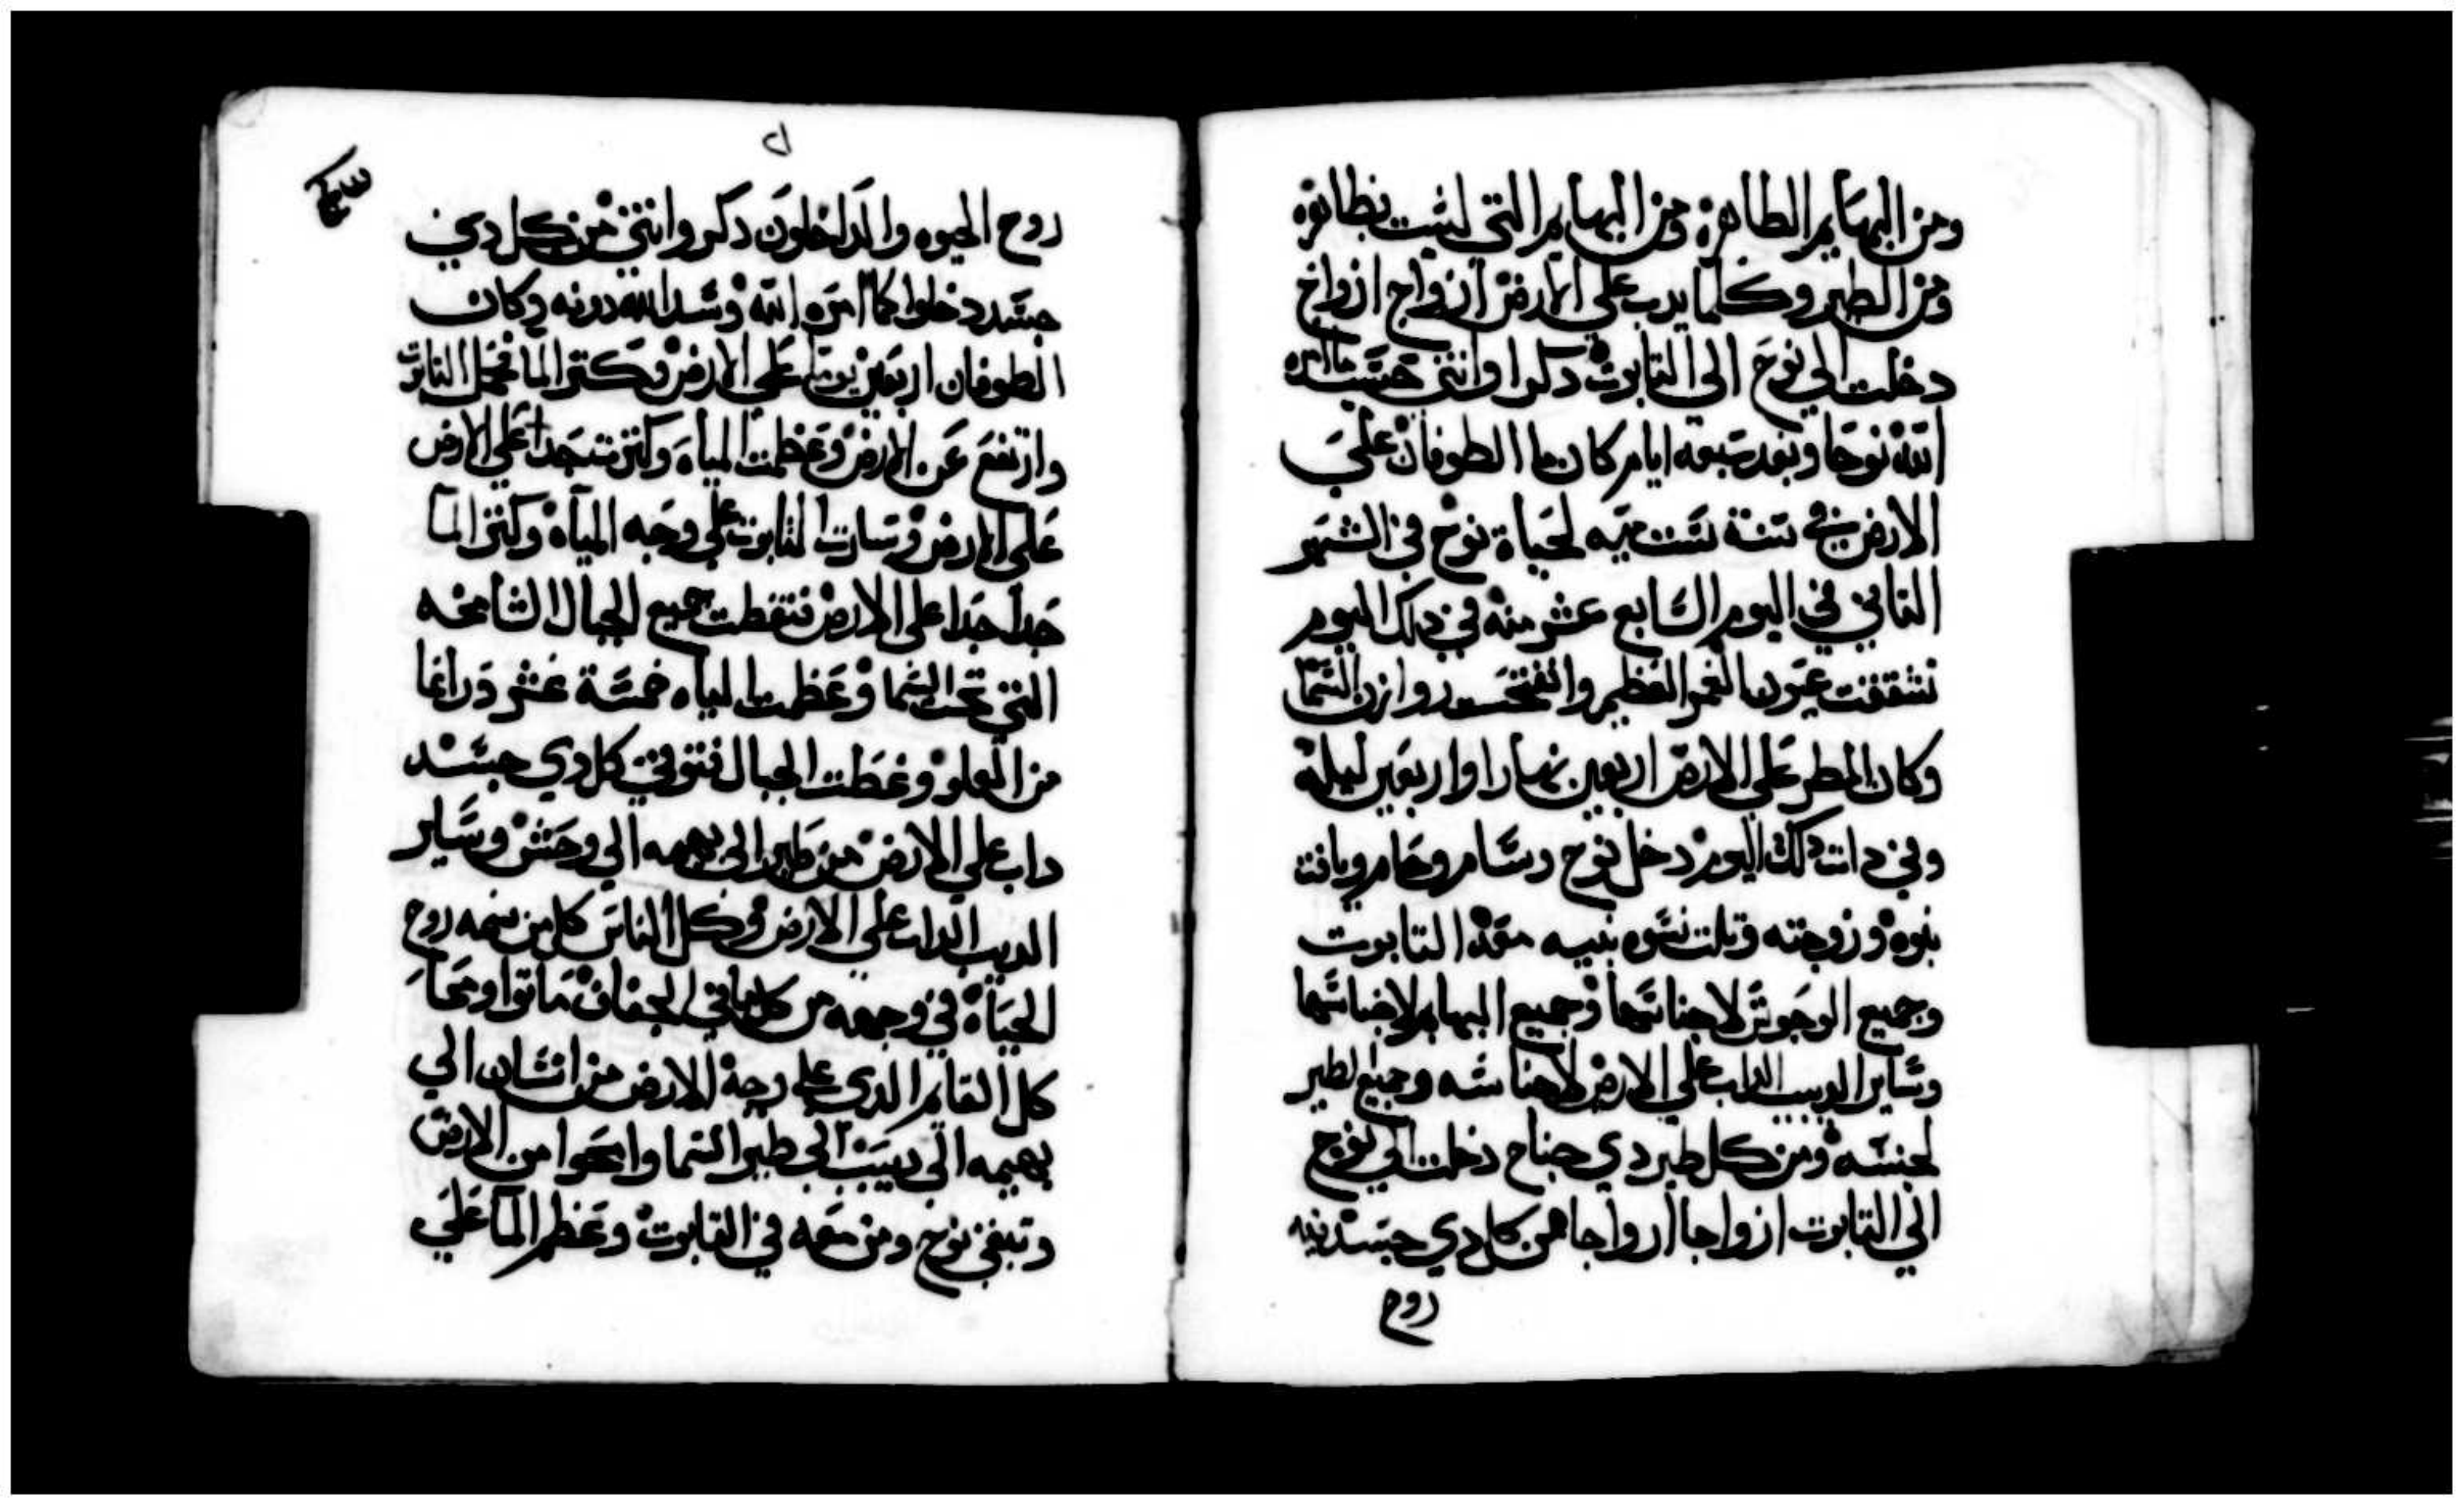 ومن البهايم الطاهرة ومن البهايم التي ليست بطاهره
ومن الطير وكلما يدب على الارض ازواج ازواج
دخلت الي نوح الى التابوت دكرا وانتى حسب ما امره
الله نوحا وبعد سبعه ايام كان ما الطوفان علي
الارض في سنة ست ميه لحياة نوح في الشهر
التاني في اليوم السابع عشر منه في دلك اليوم
تشققت عيون الغمر العظيم وانفتحت روازن السما
وكان المطر علي الارض اربعين نهارا واربعين ليله
وفي دات دلك اليوم دخل نوح وسام وحام ويافت
بنوه وزوجته وتلت نسوه بنيه معه الي التابوت
وجميع الوحوش لاجناسها وجميع البهايم لاجناسها
وساير الدبيب الداب علي الارض لاجناسه وجميع الطير
لجنسه ومن كل طير دي جناح دخلت الي نوح
الي التابوت ازواجا ازواجا من كل دي جسد فيه
روح
روح الحيوه والداخلون دكر وانتي من كل دي
جسد دخلوا كما امره الله وسد الله دونه وكان
الطوفان اربعين يوما علي الارض وكتر الما فحمل التابوت
وارتفع عن الارض وعظمت المياه وكتر جدا علي الارض
على الارض وسارت التابوت علي وجه المياه وكتر الما
جدا جدا على الارض فتغطت جميع الجبال الشامخه
التي تحت السما وعظمت المياه خمسة عشر دراعا
من العلو وغطت الجبال فتوفي كل دي جسد
داب علي الارض من طير الى بهيمه الي وحش وساير
الدبيب الداب علي الارض وكل الناس كل من نسمه روح
الحياه في وجهه من كل ما في الجفاف ماتوا ومحا
كل القايم الدي على وجه الارض من انسان الي
بهيمه الي دبيب الي طير السما وامحوا من الارض
وتبقي نوح ومن معه في التابوت وعظم الما علي